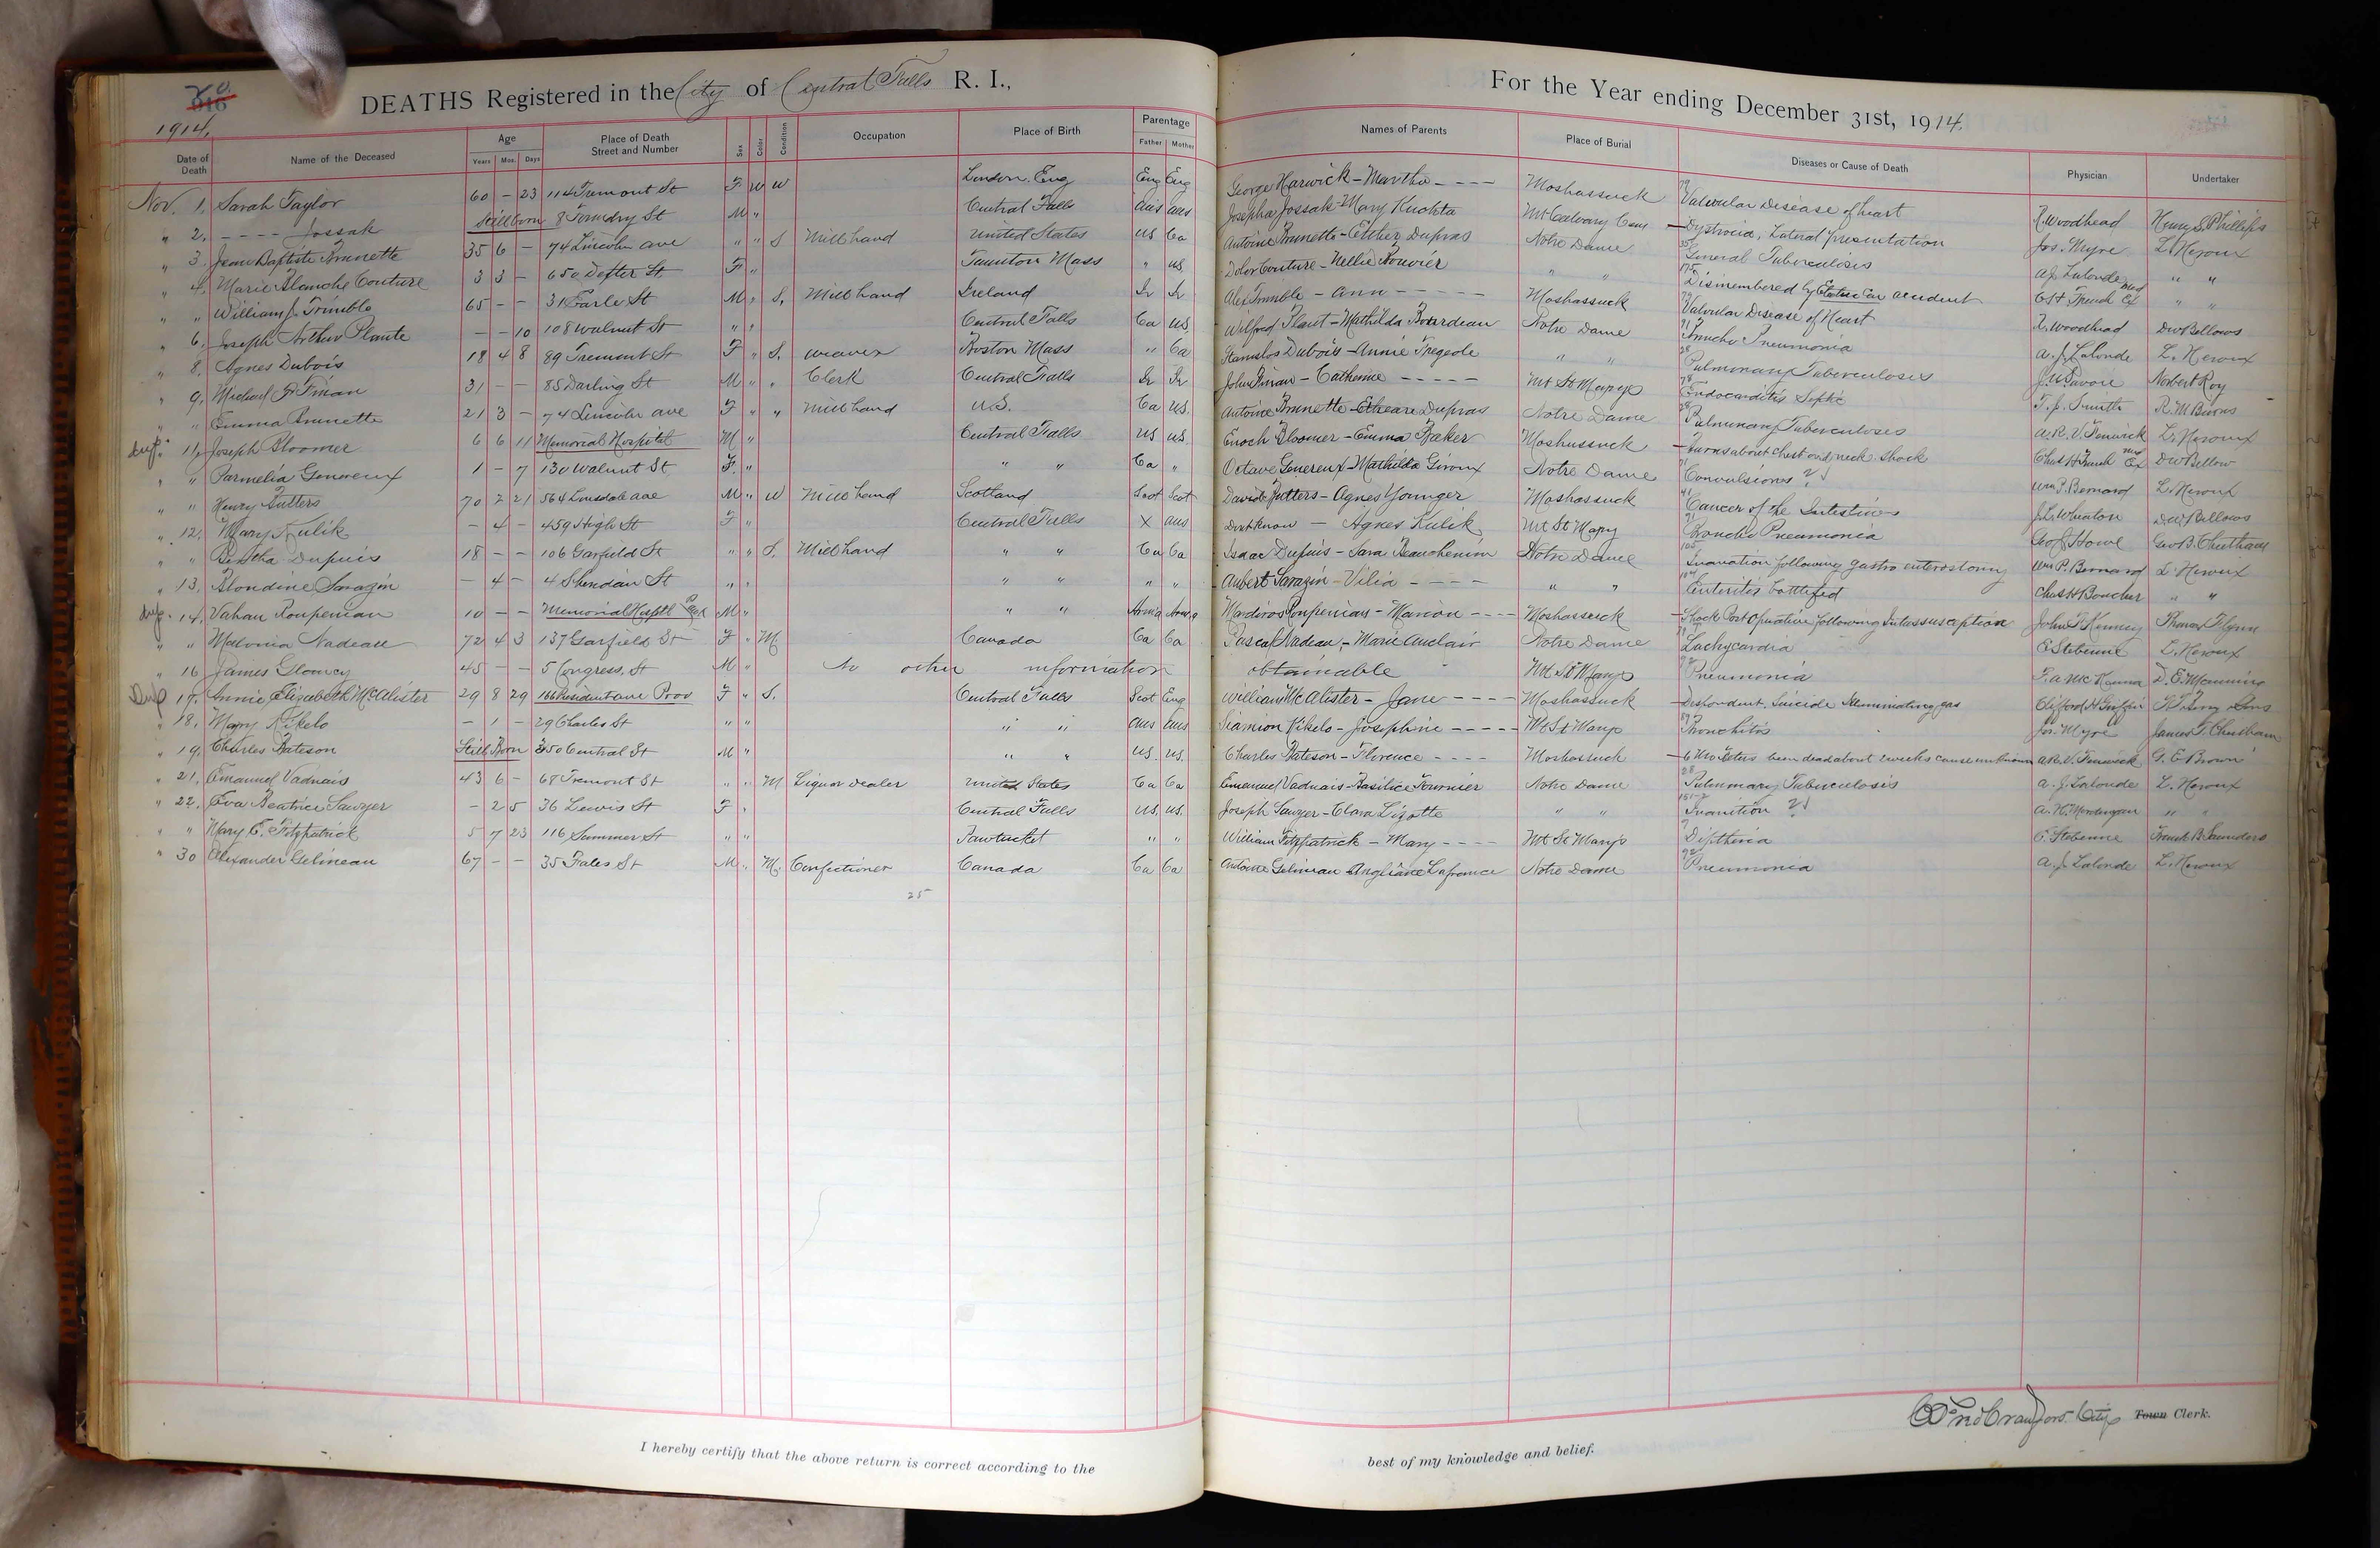 DEATHS Registered in the City of Central Falls R. I., For the Year ending December 31st, 1914.
1914.
Date of Death Name of the Deceased Age Years Mos. Days Place of Death Street and Number Sex Color Condition Occupation Place of Birth Parentage Father Mother Names of Parents Place of Burial Diseases or Cause of Death Physician Undertaker
Nov. 1, Sarah Taylor 60 - 23 114 Tremont St F W W London. Eng Eng Eng George Harwick - Martha - - - - Moshassuck 79 Valvular Disease of heart R. Woodhead Henry S. Phillips
" 2, - - - - Jossak Stillborn 8 Foundry St M " Central Falls Aus Aus Josepha Jossak - Mary Kuchta Mt Calvary Cem - Dystocia, Lateral presentation Jos. Myre L. Heroux
" 3. Jean Baptiste Brunette 35 6 - 74 Lincoln Ave " " S Mill hand United States US Ca Antoine Brunette - Esther Dupras Notre Dame General Tuberculosis A. J. Lalonde " "
" 4, Marie Blanche Couture 3 3 - 650 Dexter St F " Taunton Mass " US Dolor Couture - Nellie Bouvier " " 175 Dismembered by Electric Car accident C. H. French Med Ex " "
" " William J. Trimble 65 - - 31 Earle St M " S. Mill hand Ireland Ir Ir Alex Trimble - Ann - - - - - Moshassuck 79 Valvular Disease of Heart R. Woodhead D W Bellows
" 6, Joseph Arthur Plante - - 10 108 Walnut St " " Central Falls Ca US. Wilfred Plant - Mathilda Bourdeau Notre Dame 91 Broncho Pneumonia A. J. Lalonde L. Heroux
" 8, Agnes Dubois 18 4 8 89 Tremont St F " S. Weaver Boston Mass " Ca Stanislos Dubois - Annie Tregede " " 28 Pulmonary Tuberculosis Norbert Roy
" 9, Michael J. Finan 31 - - 85 Darling St M " " Clerk Central Falls Ir Ir John Finan - Catherine - - - - - Mt St Marys 78 Endocarditis Septic T. J. Smith R. M Burns
" " Emma Brunette 21 3 - 74 Lincoln Ave F " " Mill hand U.S. Ca US. Antoine Brunette - Dupras Notre Dame 28 Pulmonary Tuberculosis A. R. V. Fenwick L. Heroux
dup. 11, Joseph Bloomer 6 6 11 Memorial Hospital M " Central Falls US US. Enoch Bloomer - Emma Baker Moshassuck - Burns about chest and neck. Shock Chas H French Med Ex D W Bellow
" " Parmelia Genereux 1 - 7 130 Walnut St F. " " " Ca " Octave Genereux - Mathilda Giroux Notre Dame 71 Convulsions ? Wm P. Bernard L. Heroux
" " Henry 70 2 21 564 Lonsdale Ave M " W Mill hand Scotland Scot Scot David - Agnes Younger Moshassuck 41 Cancer of the Intestines J. L. Wheaton D. W. Bellows
" 12, Mary Kulik - 4 - 459 High St F " Central Falls X Aus Dont Know - Agnes Kulik Mt St Mary 91 Broncho Pneumonia Geo J Howe Geo B. Cheetham
" " Bertha Dupuis 18 - - 106 Garfield St " " S. Mill hand " " Ca Ca Isaac Dupuis - Sara Beauchemin Notre Dame Inanation following Gastro enterostomy Wm P. Bernard L. Heroux
" 13, Blondine Sarazin - 4 - 4 Sheridan St " " " " " " Aubert Sarazin - Vilia - - - - " " 104 Enteritis bottlefed Chas H Boucher " "
dup. 14, Vahan Roupenian 10 - - Memorial Hosptl M " " " Armia Arm a Mardiros Roupenian - Marion - - - - Moshassuck - Shock Post Operative following Intussusception John F. Kenney Thomas Flynn
" " Malonia Nadeau 72 4 3 137 Garfield St F " M Canada Ca Ca Pascal Nadeau - Marie Auclair Notre Dame Tachycardia E Stebenne L. Heroux
" 16 James 45 - - 5 Congress, St M " No other information obtainable Mt St Marys 92 Pneumonia F. A. McKenna D. E. Manning
Dup 17. Annie Elizabeth McAlister 29 8 29 166 President Ave Prov F " S. Central Falls Scot Eng William McAlister - Jane - - - - Moshassuck - Despondent, Suicide Illuminating gas Clifford H Griffin
" 18. Mary Kikelo - 1 - 29 Charles St " " " " Aus Aus Kikelo - Josephine - - - - Mt St Marys 89 Bronchitis Jos. Myre James F. Cheetham
" 19, Charles Bateson Still Born 350 Central St M " " " US. US. Charles Bateson - Florence - - - - Moshassuck - 6 Mo Foetus been dead about 2 weeks cause unknown A. R. V. Fenwick G. E. Brown
" 21, Emanuel Vadnais 43 6 - 68 Tremont St " " M Liquor Dealer United States Ca Ca Emanuel Vadnais - Basilice Fournier Notre Dame 28 Pulmonary Tuberculosis A. J. Lalonde L. Heroux
" 22, Eva Beatrice Sawyer - 2 5 36 Lewis St F " Central Falls US. US. Joseph Sawyer - Clara Lizotte " " 151-2 Inanition ? " "
" " Mary E. Fitzpatrick 5 7 23 116 Summer St " " Pawtucket " " William Fitzpatrick - Mary - - - - Mt St Marys 9 Diptheria E. Stebenne Frank B. Saunders
" 30 Alexander Gelineau 67 - - 35 Fales St M " M. Confectioner Canada Ca Ca Antoine Gelineau Lafrance Notre Dame 92 Pneumonia A. J. Lalonde L. Heroux
25
City Town Clerk.
I hereby certify that the above return is correct according to the best of my knowledge and belief.